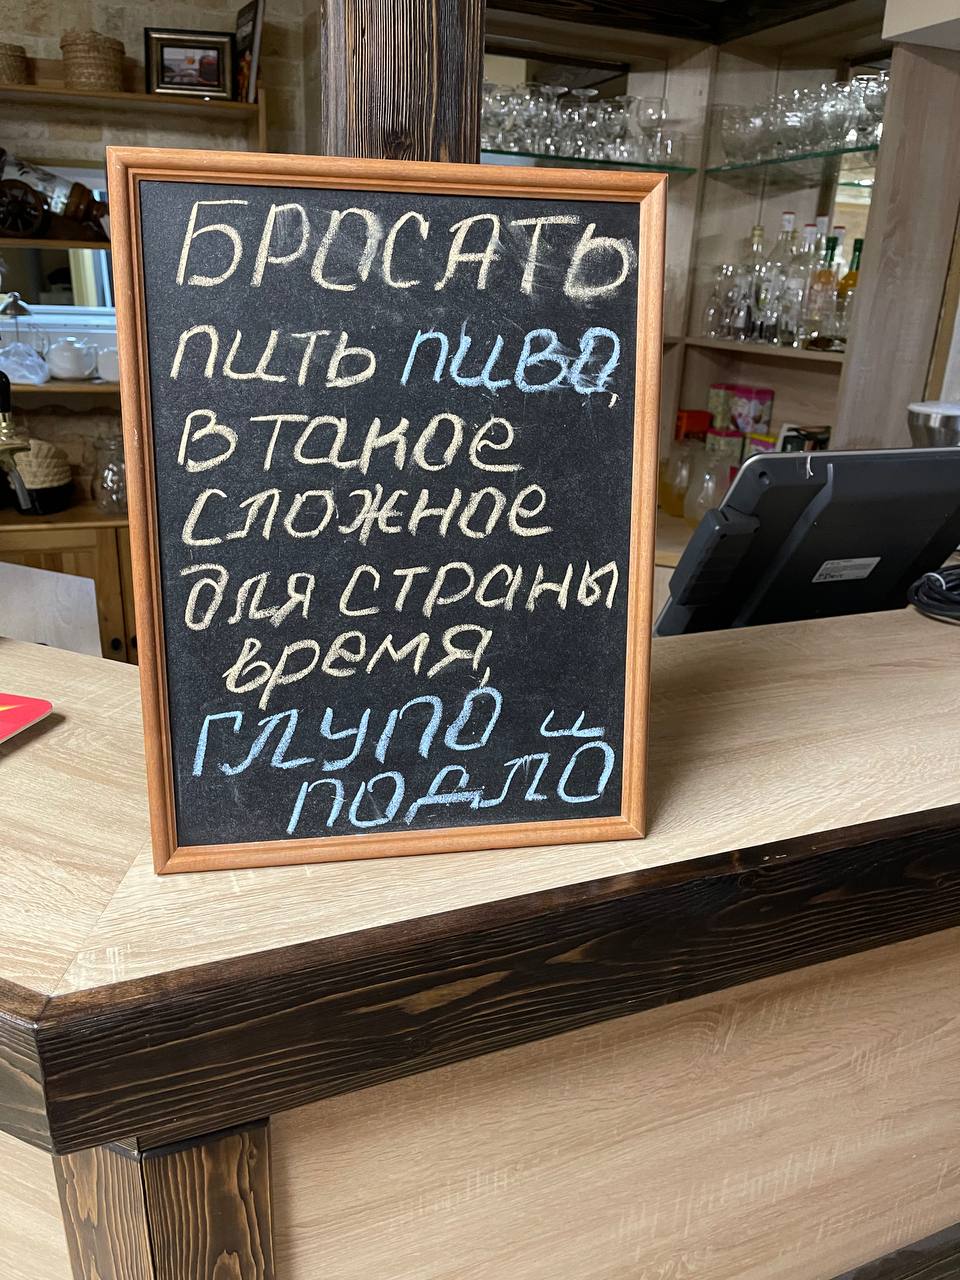 БРОСАТЬ
пить пиво,
в такое
сложное
для страны
время,
глупо и
подло